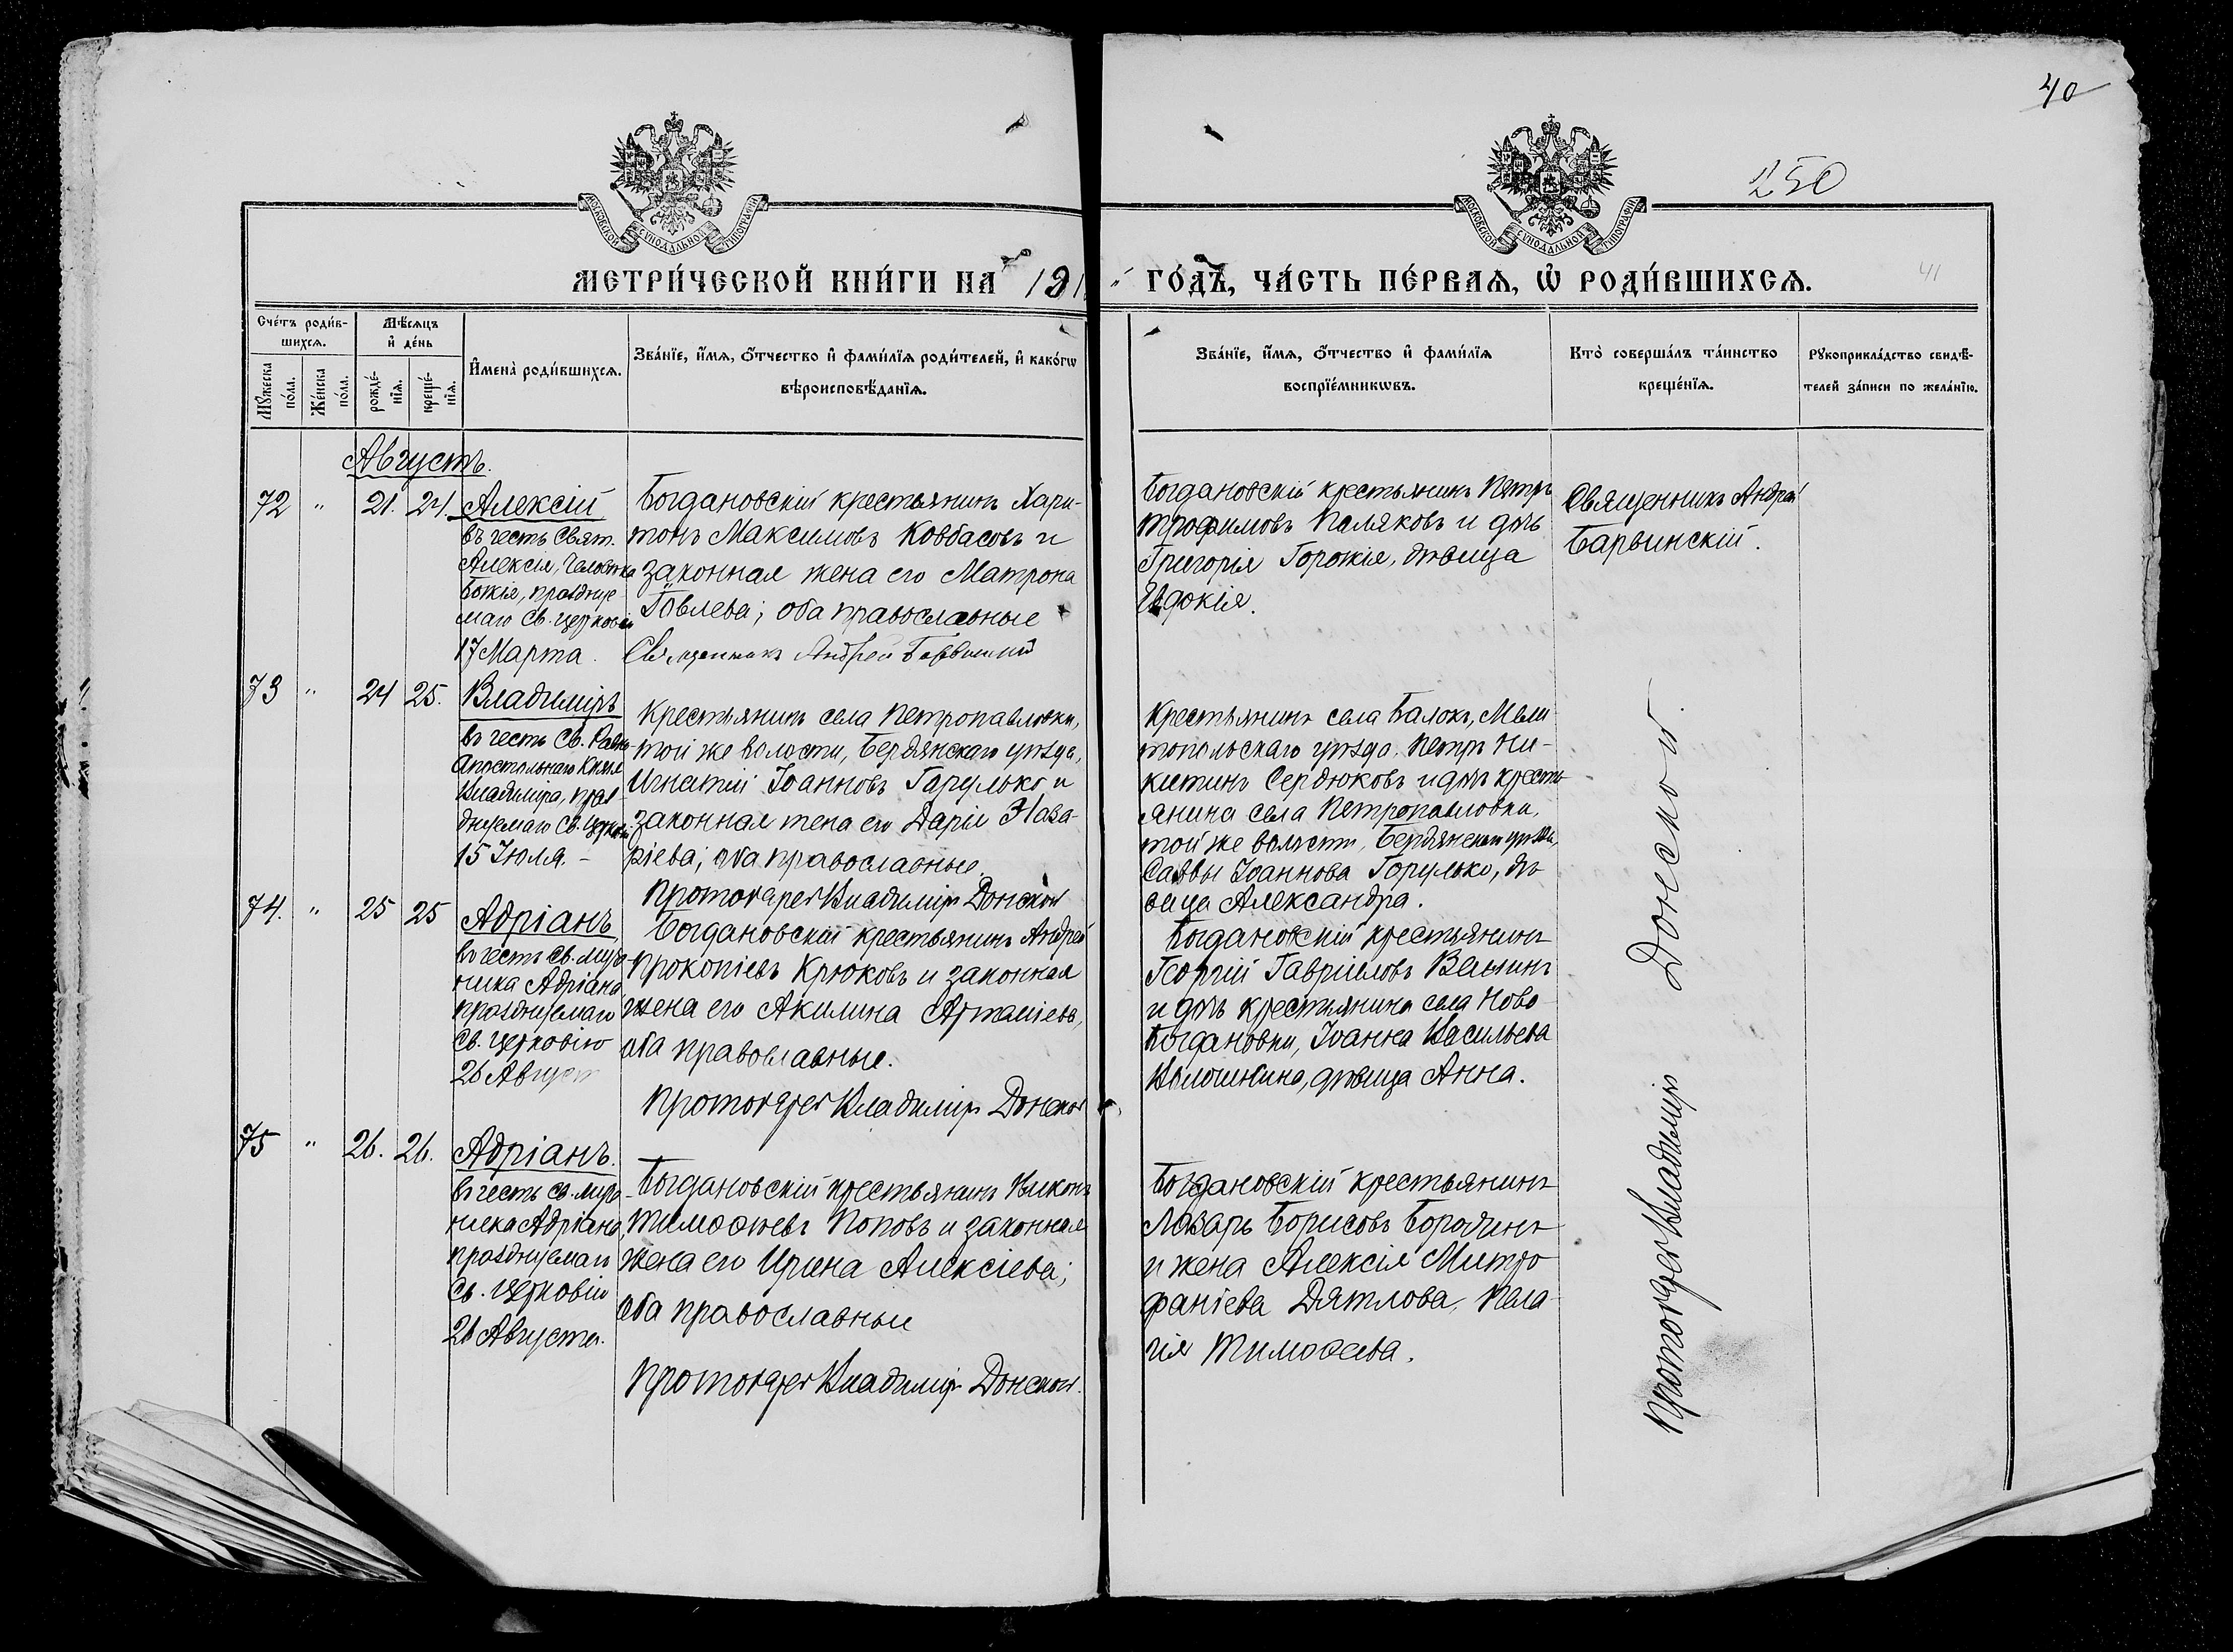 40
250
41
МОСКОВСКОЙ СѴНОДАЛЬНОЙ ТИПОГРАФІИ
МОСКОВСКОЙ СѴНОДАЛЬНОЙ ТИПОГРАФІИ
МЕТРИ́ЧЕСКОЙ КНИ́ГИ НА 191 ГО́ДЪ, ЧА́СТЬ ПЕ́РВАѦ, Ѡ҆ РОДИ́ВШИХСѦ.
Сче́тъ роди́в-
шихсѧ.
Мꙋ́жеска по́ла.
Же́нска по́ла.
Мѣ́сѧцъ
и҆ де́нь
рожде́-
нїѧ.
креще́-
нїѧ.
И҆мена̀ роди́вшихсѧ.
Зва́нїе, и҆́мѧ, ѻ҆́тчество и҆ фами́лїѧ роди́телей, и҆ како́гѡ
вѣроисповѣ́данїѧ.
Зва́нїе, и҆́мѧ, ѻ҆́тчество и҆ фами́лїѧ
воспрїе́мникѡвъ.
Кто̀ соверша́лъ та́инство
креще́нїѧ.
Рꙋкоприкла́дство свидѣ́-
телей за́писи по жела́нїю.
Августъ.
72 " 21. 24. Алексій
въ честь Свят.
Алексія, Человѣка
Божія, праздNуе
маго Св. церковію
17 Марта.
Богдановскій крестьянинъ Хари-
тонъ Максимовъ Ковбасовъ и
законная жена его Матрона
Іовлева; оба православные
Священникъ Андрей Барвинскій
Богдановскій крестьянинъ Петръ
Трофимовъ Поляковъ и дочь
Григорія Горожія, дѣвица
Евдокія.
Священникъ Андрей
Барвинскій.
73 " 24 25. Владиміръ
въ честь Св. Равно-
Апостольнаго Князя
Владиміра, праз-
днуемаго Св. Церковію
15 Іюля. -
Крестьянинъ села Петропавловки,
той же волости, Бердянскаго уѣзда,
Игнатій Іоанновъ Гарулько и
законная жена его Дарія Наза-
ріева; оба православные
Протоіерей Владиміръ Донской
Крестьянинъ села Балокъ, Мели
топольскаго уѣзда. Петръ Ни-
китинъ Сердюковъ и дочь кресть
янина села Петропавловки,
той же волости, Бердянскаго уѣзда,
Саввы Іоаннова Горулько, дѣ
вица Александра.
74. " 25 25 Адріанъ
въ честь Св. муче
ника Адріана
празднуемаго
Св. церковію
26 Август
Богдановскій крестьянинъ Андрей
Прокопіевъ Крюковъ и законная
жена его Акилина
оба православные.
Протоіерей Владиміръ Донской
Богдановскій крестьянинъ
Георгій Гавріиловъ
и дочь крестьянина села Ново
Богдановки, Іоанна Васильева
Волошкина, дѣвица Анна.
75 " 26. 26. Адріанъ.
въ честь Св. муче-
ника Адріана,
празднуемаго
Св. церковію
26 Августа.
Богдановскій крестьянинъ Никонъ
Тимоѳеевъ Поповъ и законная
жена его Ирина Алексіева;
оба православные
Протоіерей Владиміръ Донской.
Богдановскій крестьянинъ
Лазарь Борисовъ Бородинъ
и жена Алексія Митро
фаніева Дятлова, Пела
гія Тимоѳеева.
Протоіерей Владиміръ Донской.